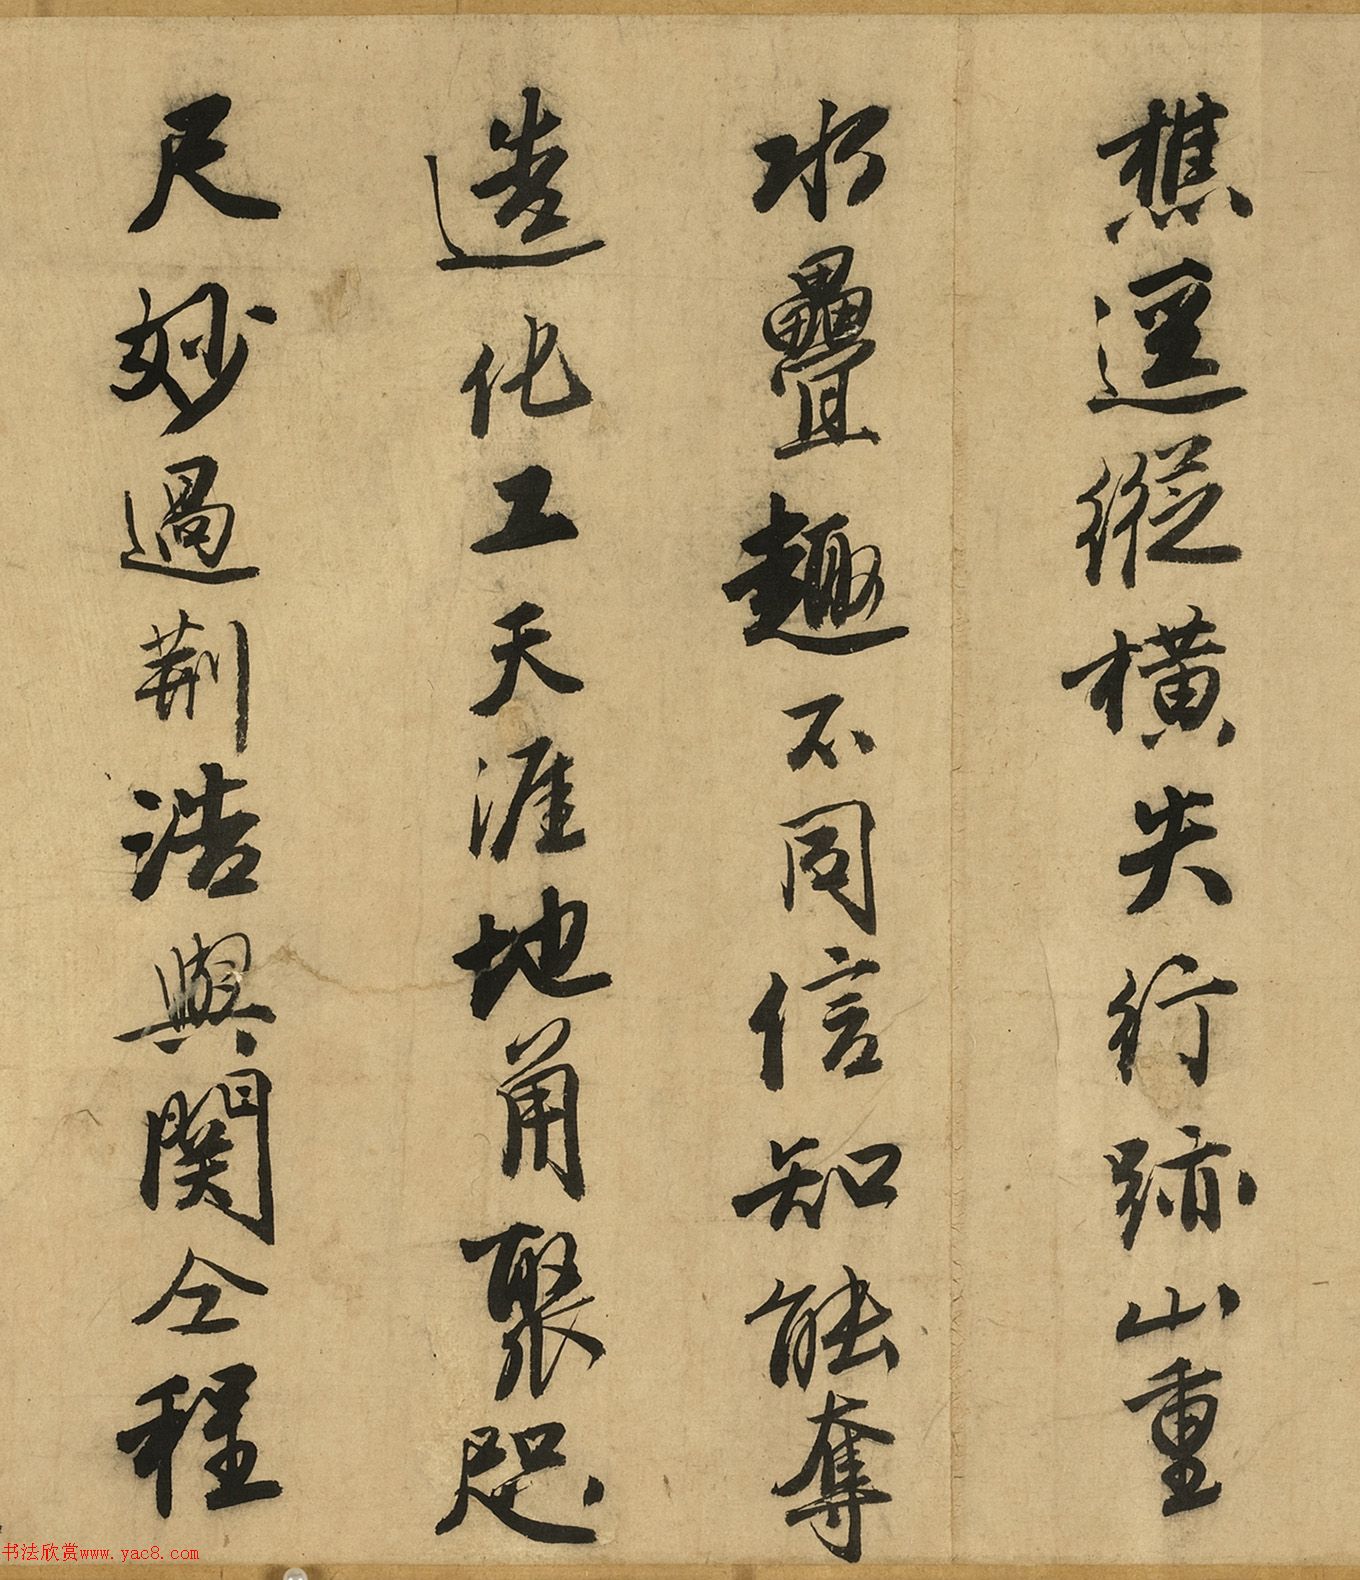 樵逕縱橫失行跡山重
水疊趣不同信知能奪
造化工天涯地角聚咫
尺妙過荆浩與関仝程
书法欣赏www.yac8.com